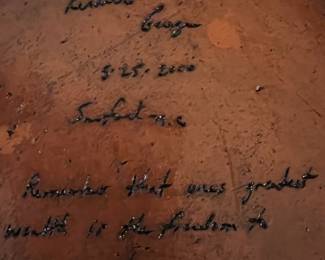 5·25·2000
Sanford N.C
Remember that ones greatest
wealth is the freedom to